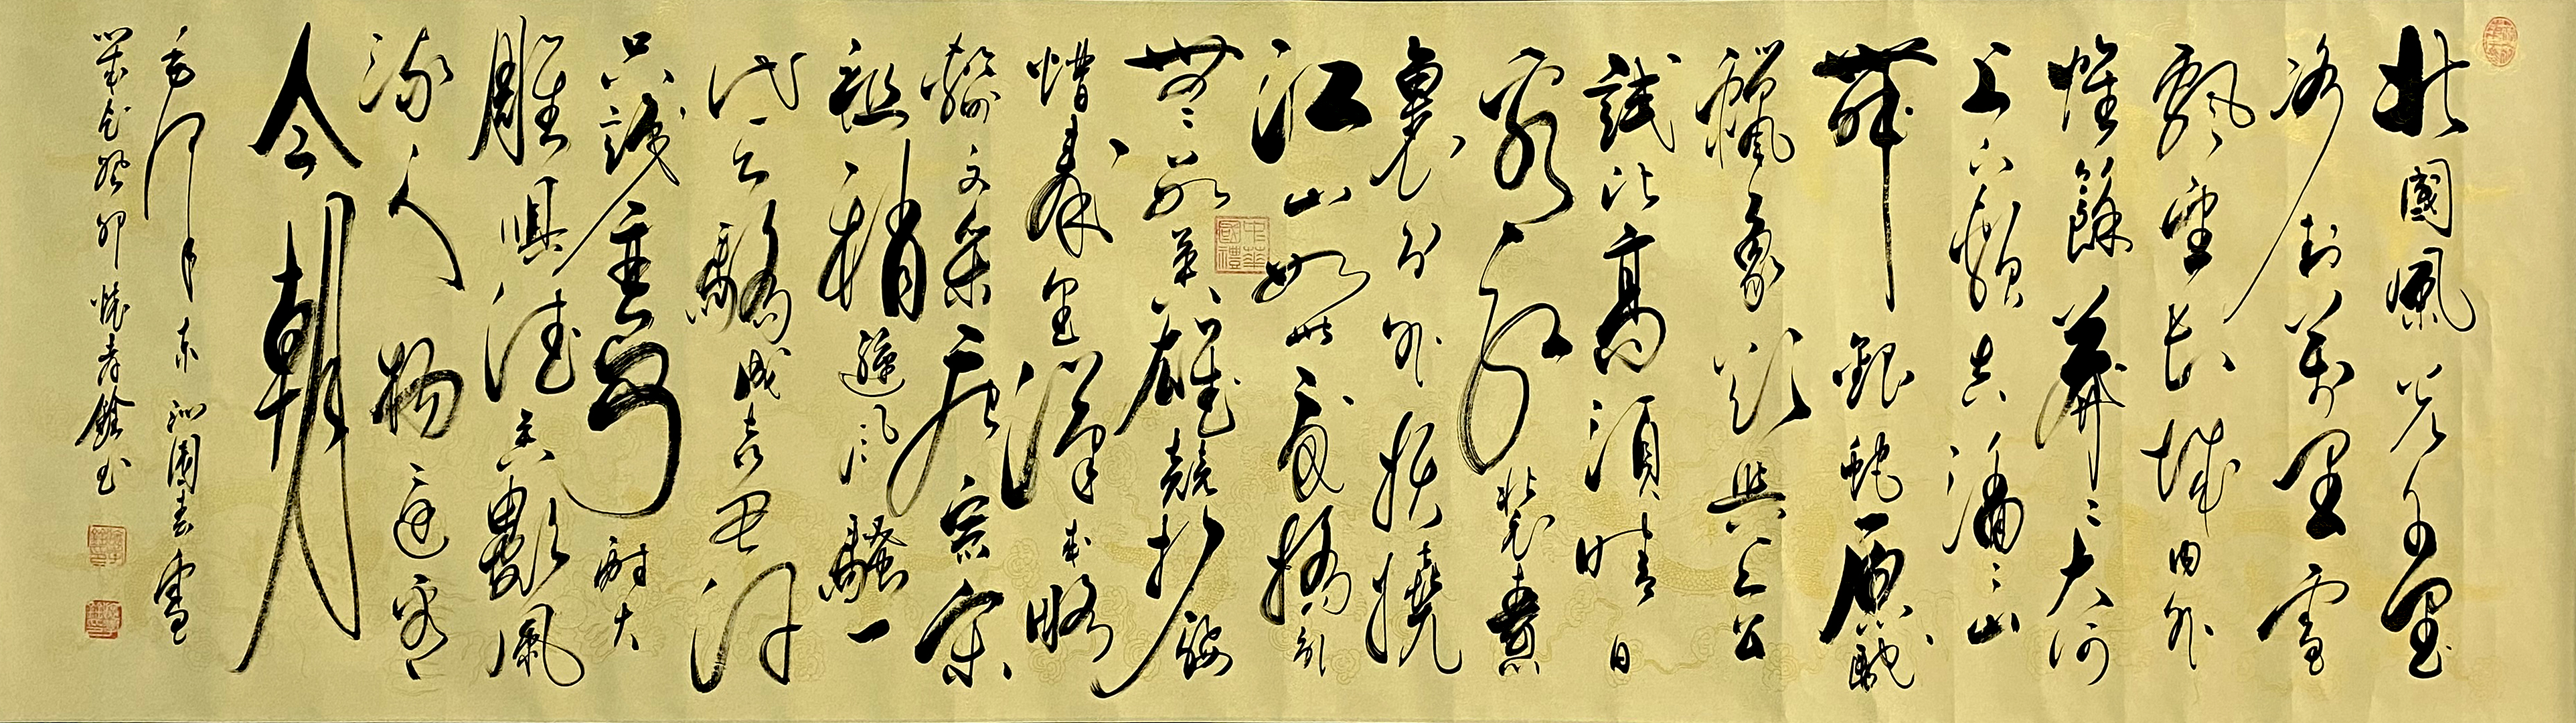 北國風光千里
冰封萬里雪
飄望長城內外
惟餘莽〻大河
上下頓失滔〻山
舞銀蛇原馳
蠟象欲與天公
試比高須晴日
看紅裝素
裹分外妖嬈
江山如此多嬌引
無數英雄競折腰
惜秦皇漢武略
輸文采唐宗宋
祖稍遜風騷一
代天驕成吉思汗
只識彎弓射大
雕俱往矣數風
流人物還看
今朝
毛澤東 沁園春雪
歲在癸卯 書
中華國禮